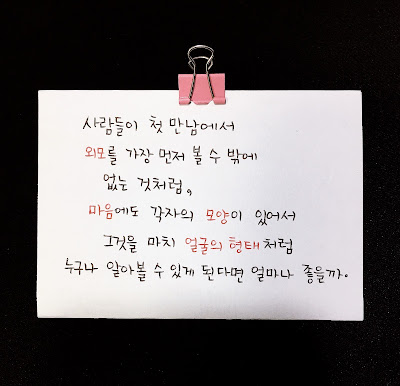 사람들이 첫 만남에서
외모를 가장 먼저 볼 수 밖에
없는 것처럼,
마음에도 각자의 모양이 있어서
그것을 마치 얼굴의 형태처럼
누구나 알아볼 수 있게 된다면 얼마나 좋을까.